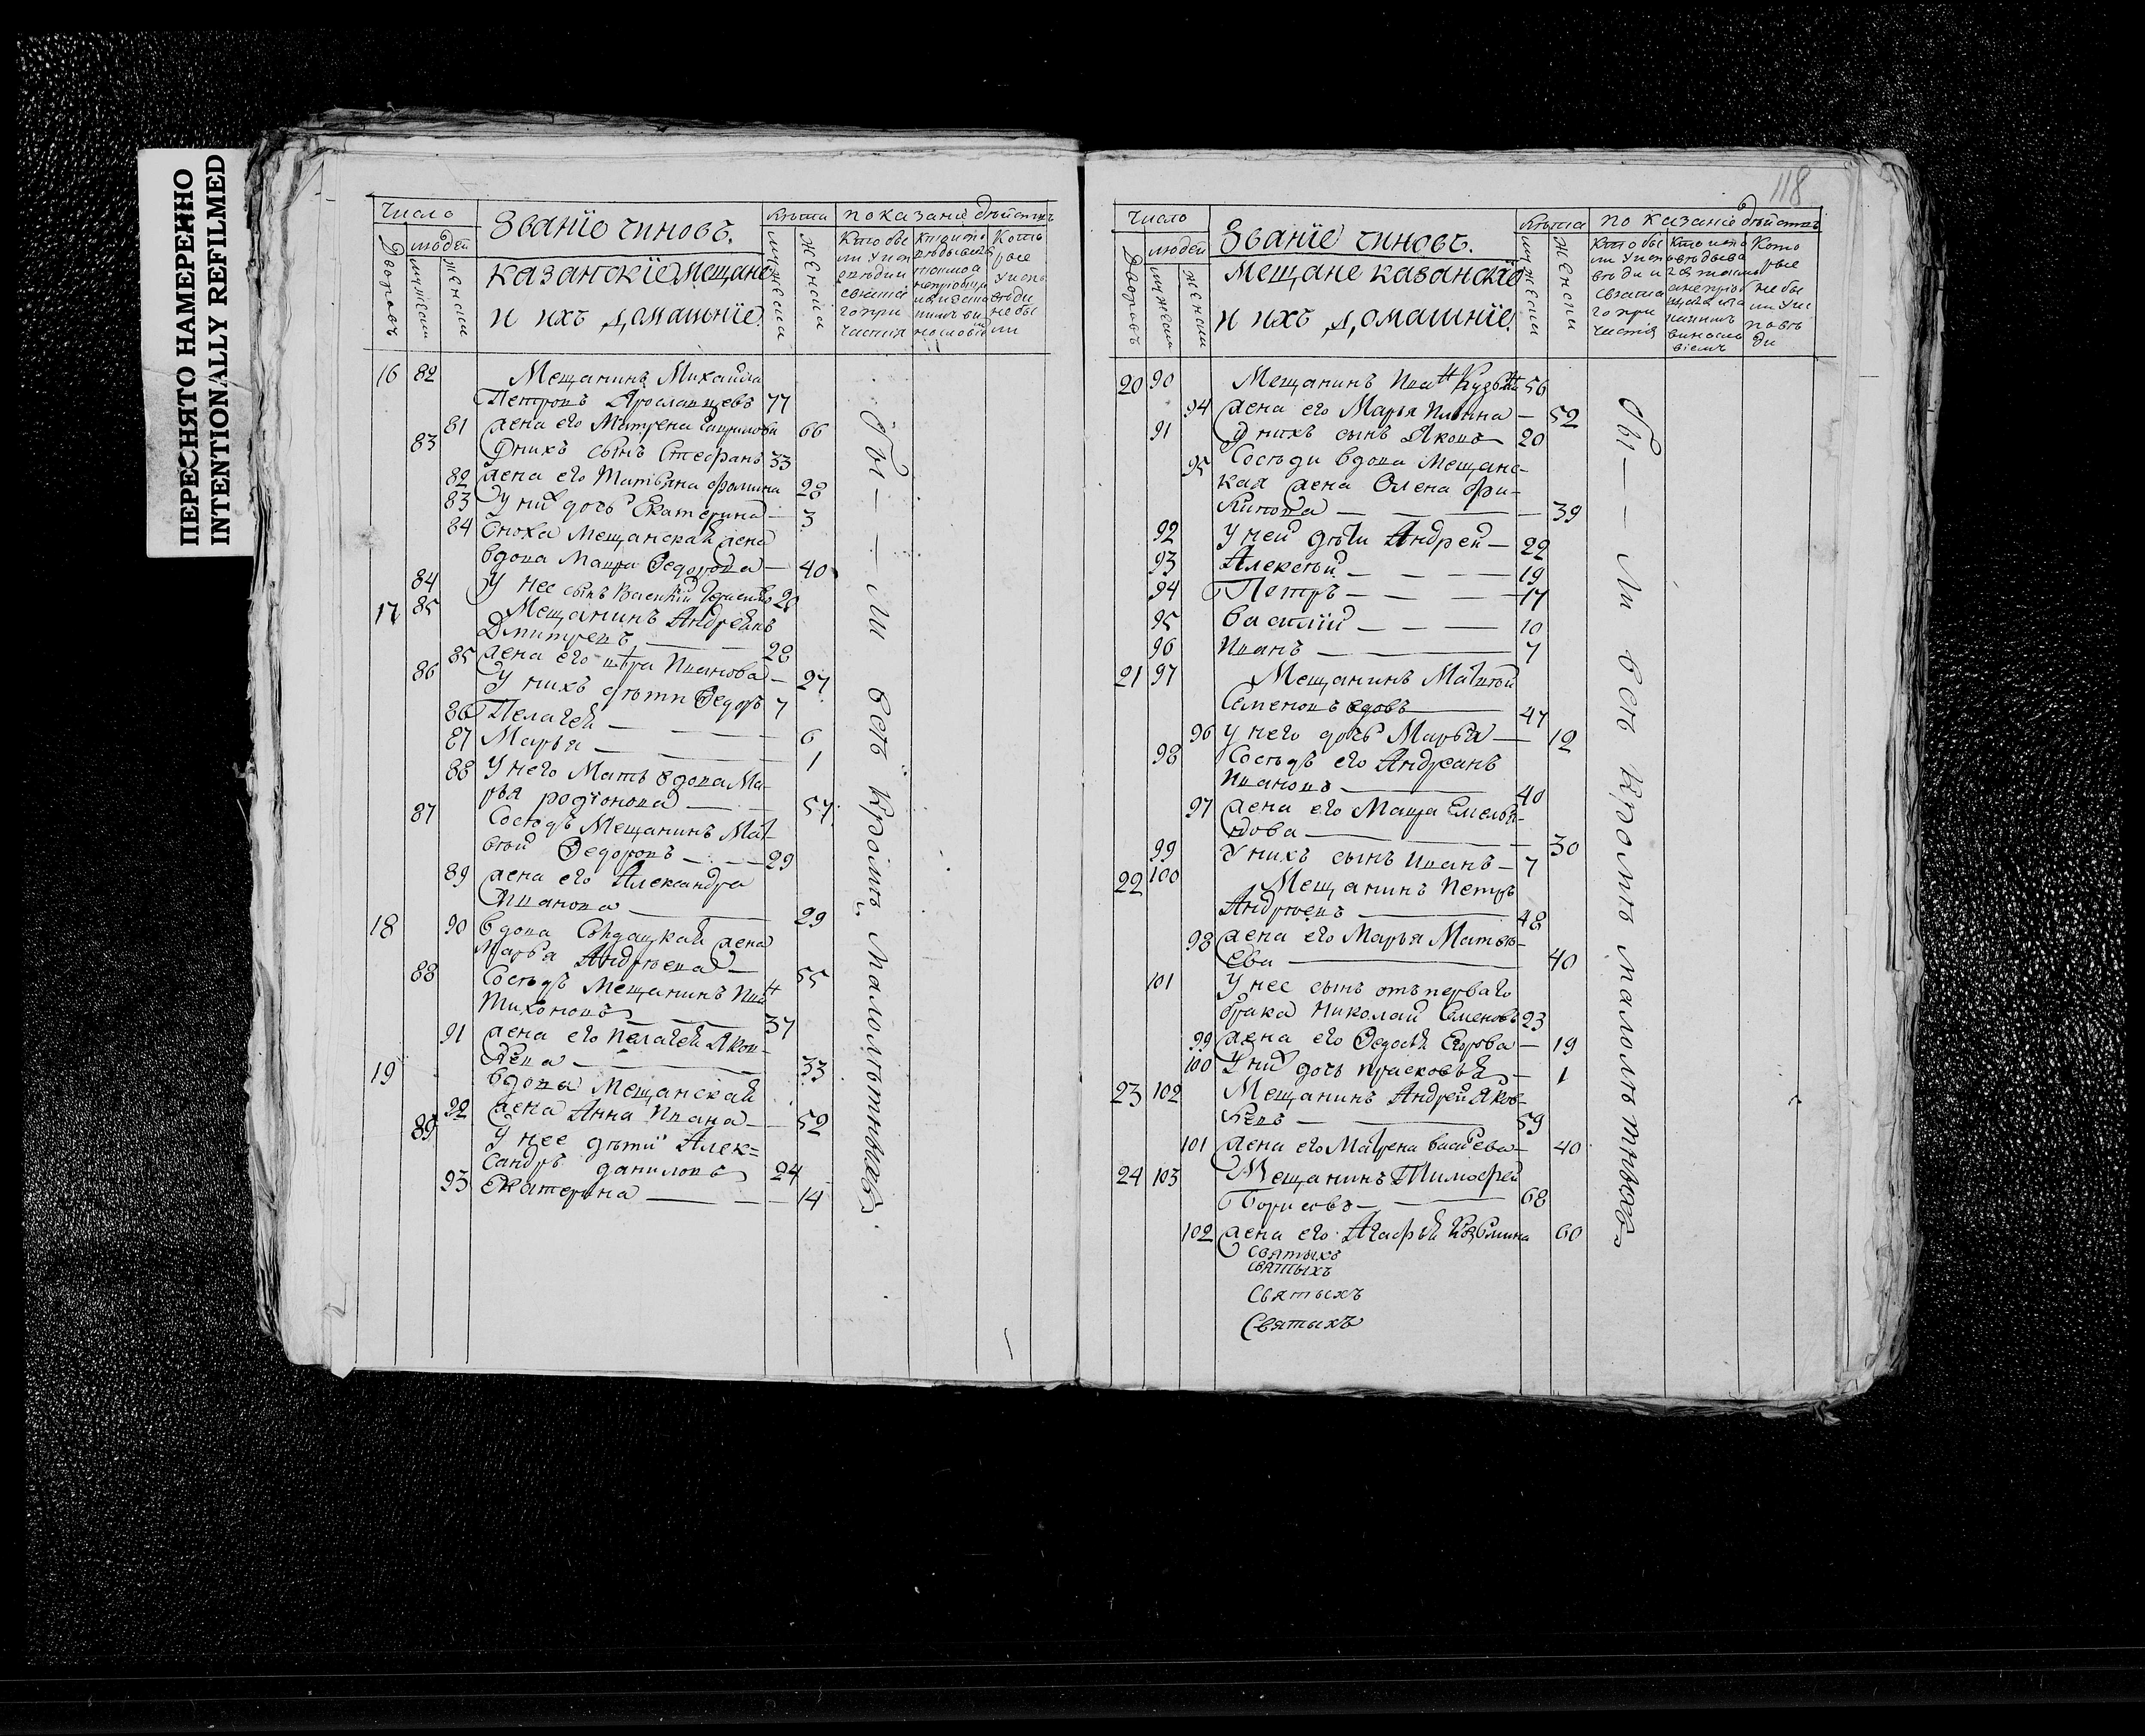 ПЕРЕСНЯТО НАМЕРЕННО
INTENTIONALLY REFILMED
число
Званїе чиновъ.
лѣта
показанїе дѣйства
Дворовъ
людей
мужеска
женска
казанскїе мещане
и ихъ домашнїе
16 82 Мещанинъ Михайла
Петровъ Ярославцевъ 77
81 жена его Матрена Гаврилова 66
83 У нихъ сынъ Стефанъ 33
82 жена его Татьяна Фомина 28
83 У них дочь Екатерина — 3
84 Сноха мещанская жена
вдова Мавра Федорова — 40
84 У нее сынъ Василий 20
17 85 Мещанинъ Андреянъ
Дмитреевъ — 28
85 жена его Ивановна — 27
86 У нихъ дѣти Федоръ 7
86 Пелагея — 6
87 Марья — 1
88 У него мать вдова Ма-
рья Родїонова — 57
87 Сосѣдъ мещанинъ Мат-
вѣй Федоровъ — 29
89 жена его Александра
Иванова — 29
18 90 Вдова солдацкая жена
Марья Андрѣева — 55
88 Сосѣдъ мещанинъ Иван
Тихоновъ — 37
91 жена его Пелагея Яков-
лева — 33
19 Вдова мещанская
92 жена Анна Ивана — 52
89 У нее дѣти Алек=
сандръ Даниловъ 24
93 Екатерина — 14
бы — — ли всѣ кромѣ малолѣтныхъ
118
число
Званїе чиновъ.
лѣта
показанїе дѣйствъ
Дворовъ
людей
мужеска
женска
Мещане казанскїе
и ихъ домашнїе
20 90 Мещанинъ Иван Кузмин 56
94 жена его Марья Ильина — 52
91 У нихъ сынъ Яковъ 20
95 Сосѣди вдова мещанс-
кая жена Олена Фи-
липова — 39
92 У ней дѣти Андрей — 22
93 Алексѣй — 19
94 Петръ — 17
95 Василїй — 10
96 Иванъ — 7
21 97 Мещанинъ Матвѣй
Семеновъ вдовъ 47
96 У него дочь Марья — 12
98 Сосѣдъ его Андреанъ
Ивановъ — 40
97 жена его Мавра Емелья-
нова — 30
99 У нихъ сынъ Иванъ — 7
22 100 Мещанинъ Петръ
Андрѣевъ — 48
98 жена его Марья Матвѣ-
ева — 40
101 У нее сынъ отъ перваго
брака Николай Семеновъ 23
99 жена его Федосья Егорова — 19
100 У них дочь Прасковья — 1
23 102 Мещанинъ Андрей Яков-
левъ — 59
101 жена его Матрена Васильева — 40
24 103 Мещанинъ Тимофей
Борисовъ — 68
102 жена его Агафья Козмина 60
Святыхъ
святыхъ
Святыхъ
Святыхъ
бы — — ли всѣ кромѣ малолѣтныхъ